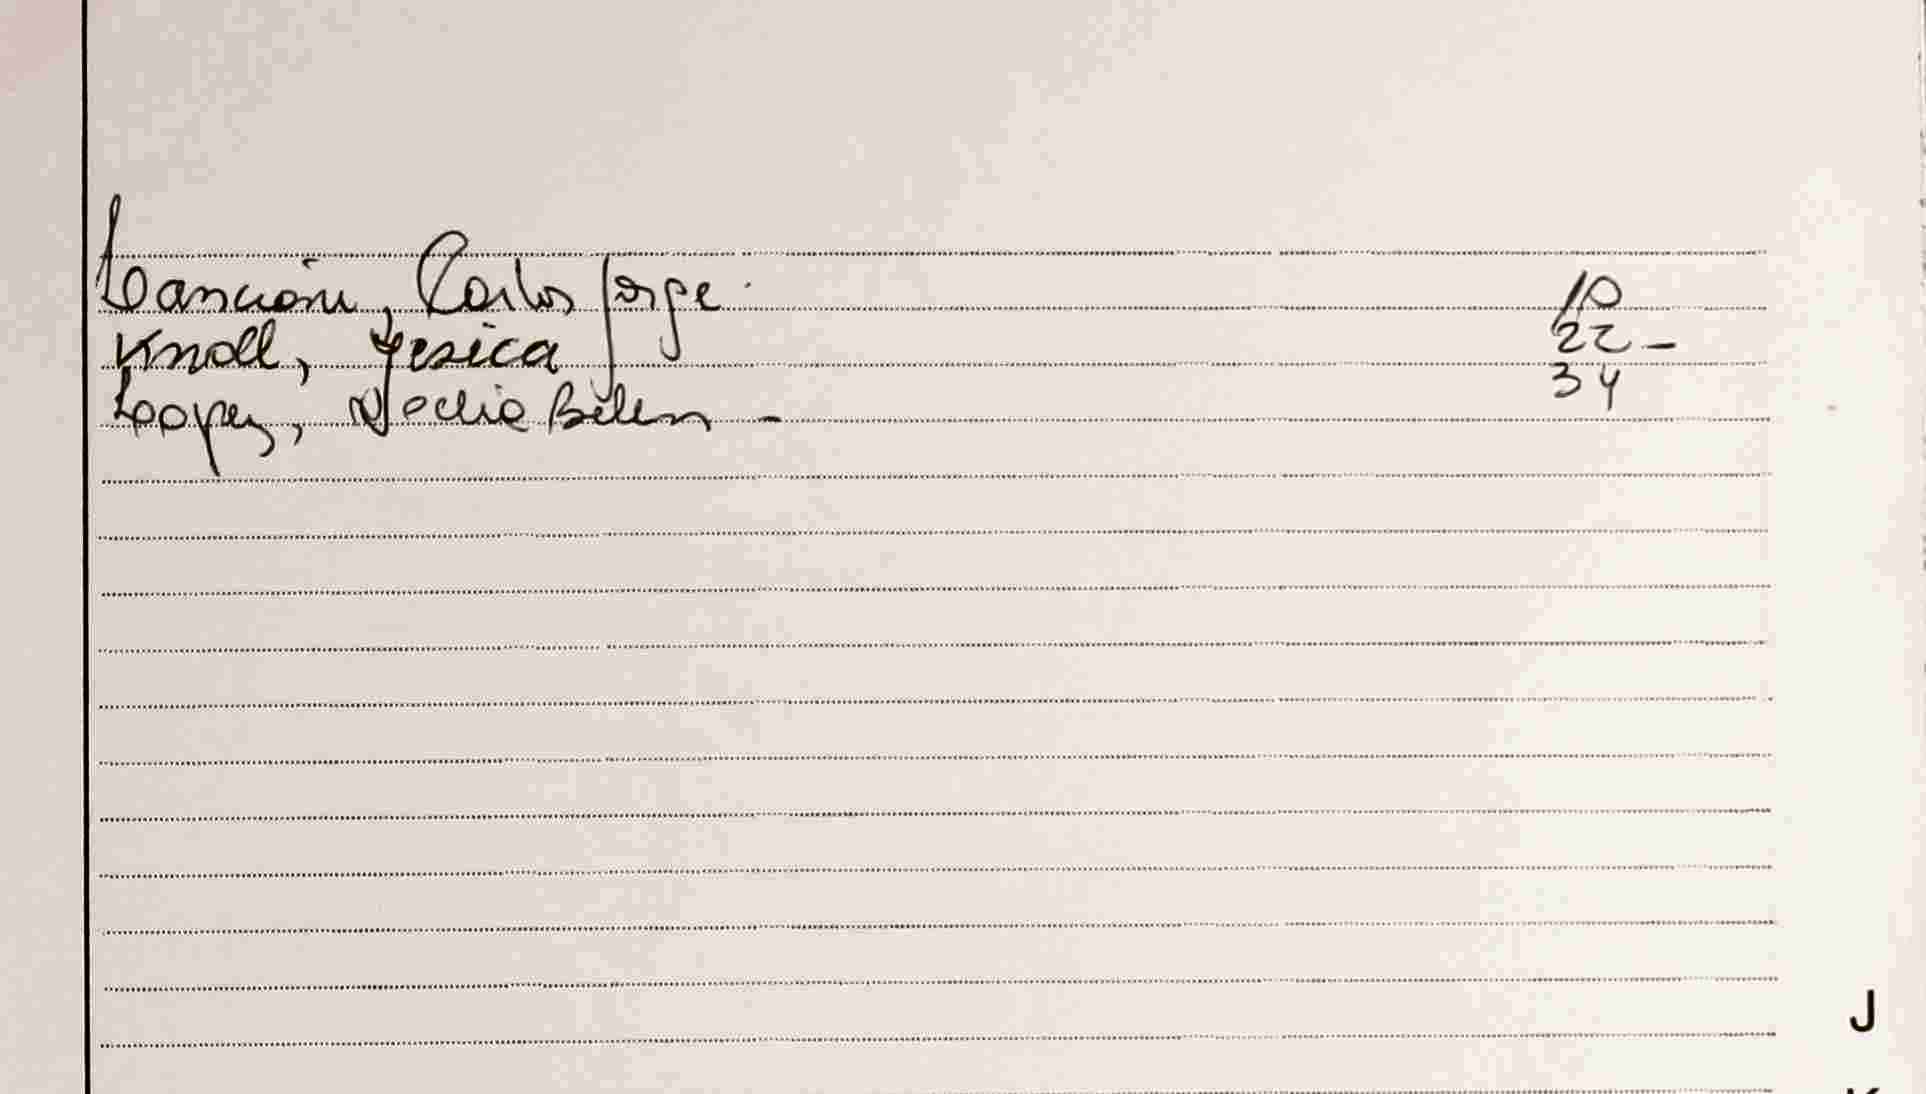 Lancioni, Carlos Jorge 10
Knoll, Yesica 22 -
Lopez, Noelia Belen - 34
J